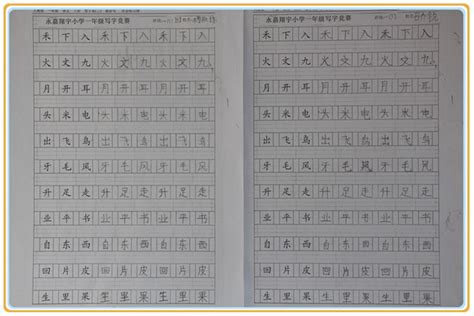 永嘉翔宇小学一年级写字竞赛
禾下入禾下入禾下入
火文九火文九火文九
月开耳月开耳月开耳
头米电头米电头米电
出飞鸟出飞鸟出飞鸟
牙毛风牙毛风牙毛风
升足走升足走升足走
业平书业平书业平书
自东西自东西自东西
回片皮回片皮回片皮
生里果生里果生里果
永嘉翔宇小学一年级写字竞赛
禾下入禾下入禾下入
火文九火文九火文九
月开耳月开耳月开耳
头米电头米电头米电
出飞鸟出飞鸟出飞鸟
牙毛风牙毛风牙毛风
升足走升足走升足走
业平书业平书业平书
自东西自东西自东西
回片皮回片皮回片皮
生里果生里果生里果